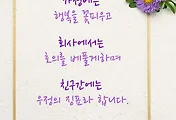 행복을 꽃피우고
회사에서는
호의를 베풀게하며
친구간에는
우정의 징표라 합니다.